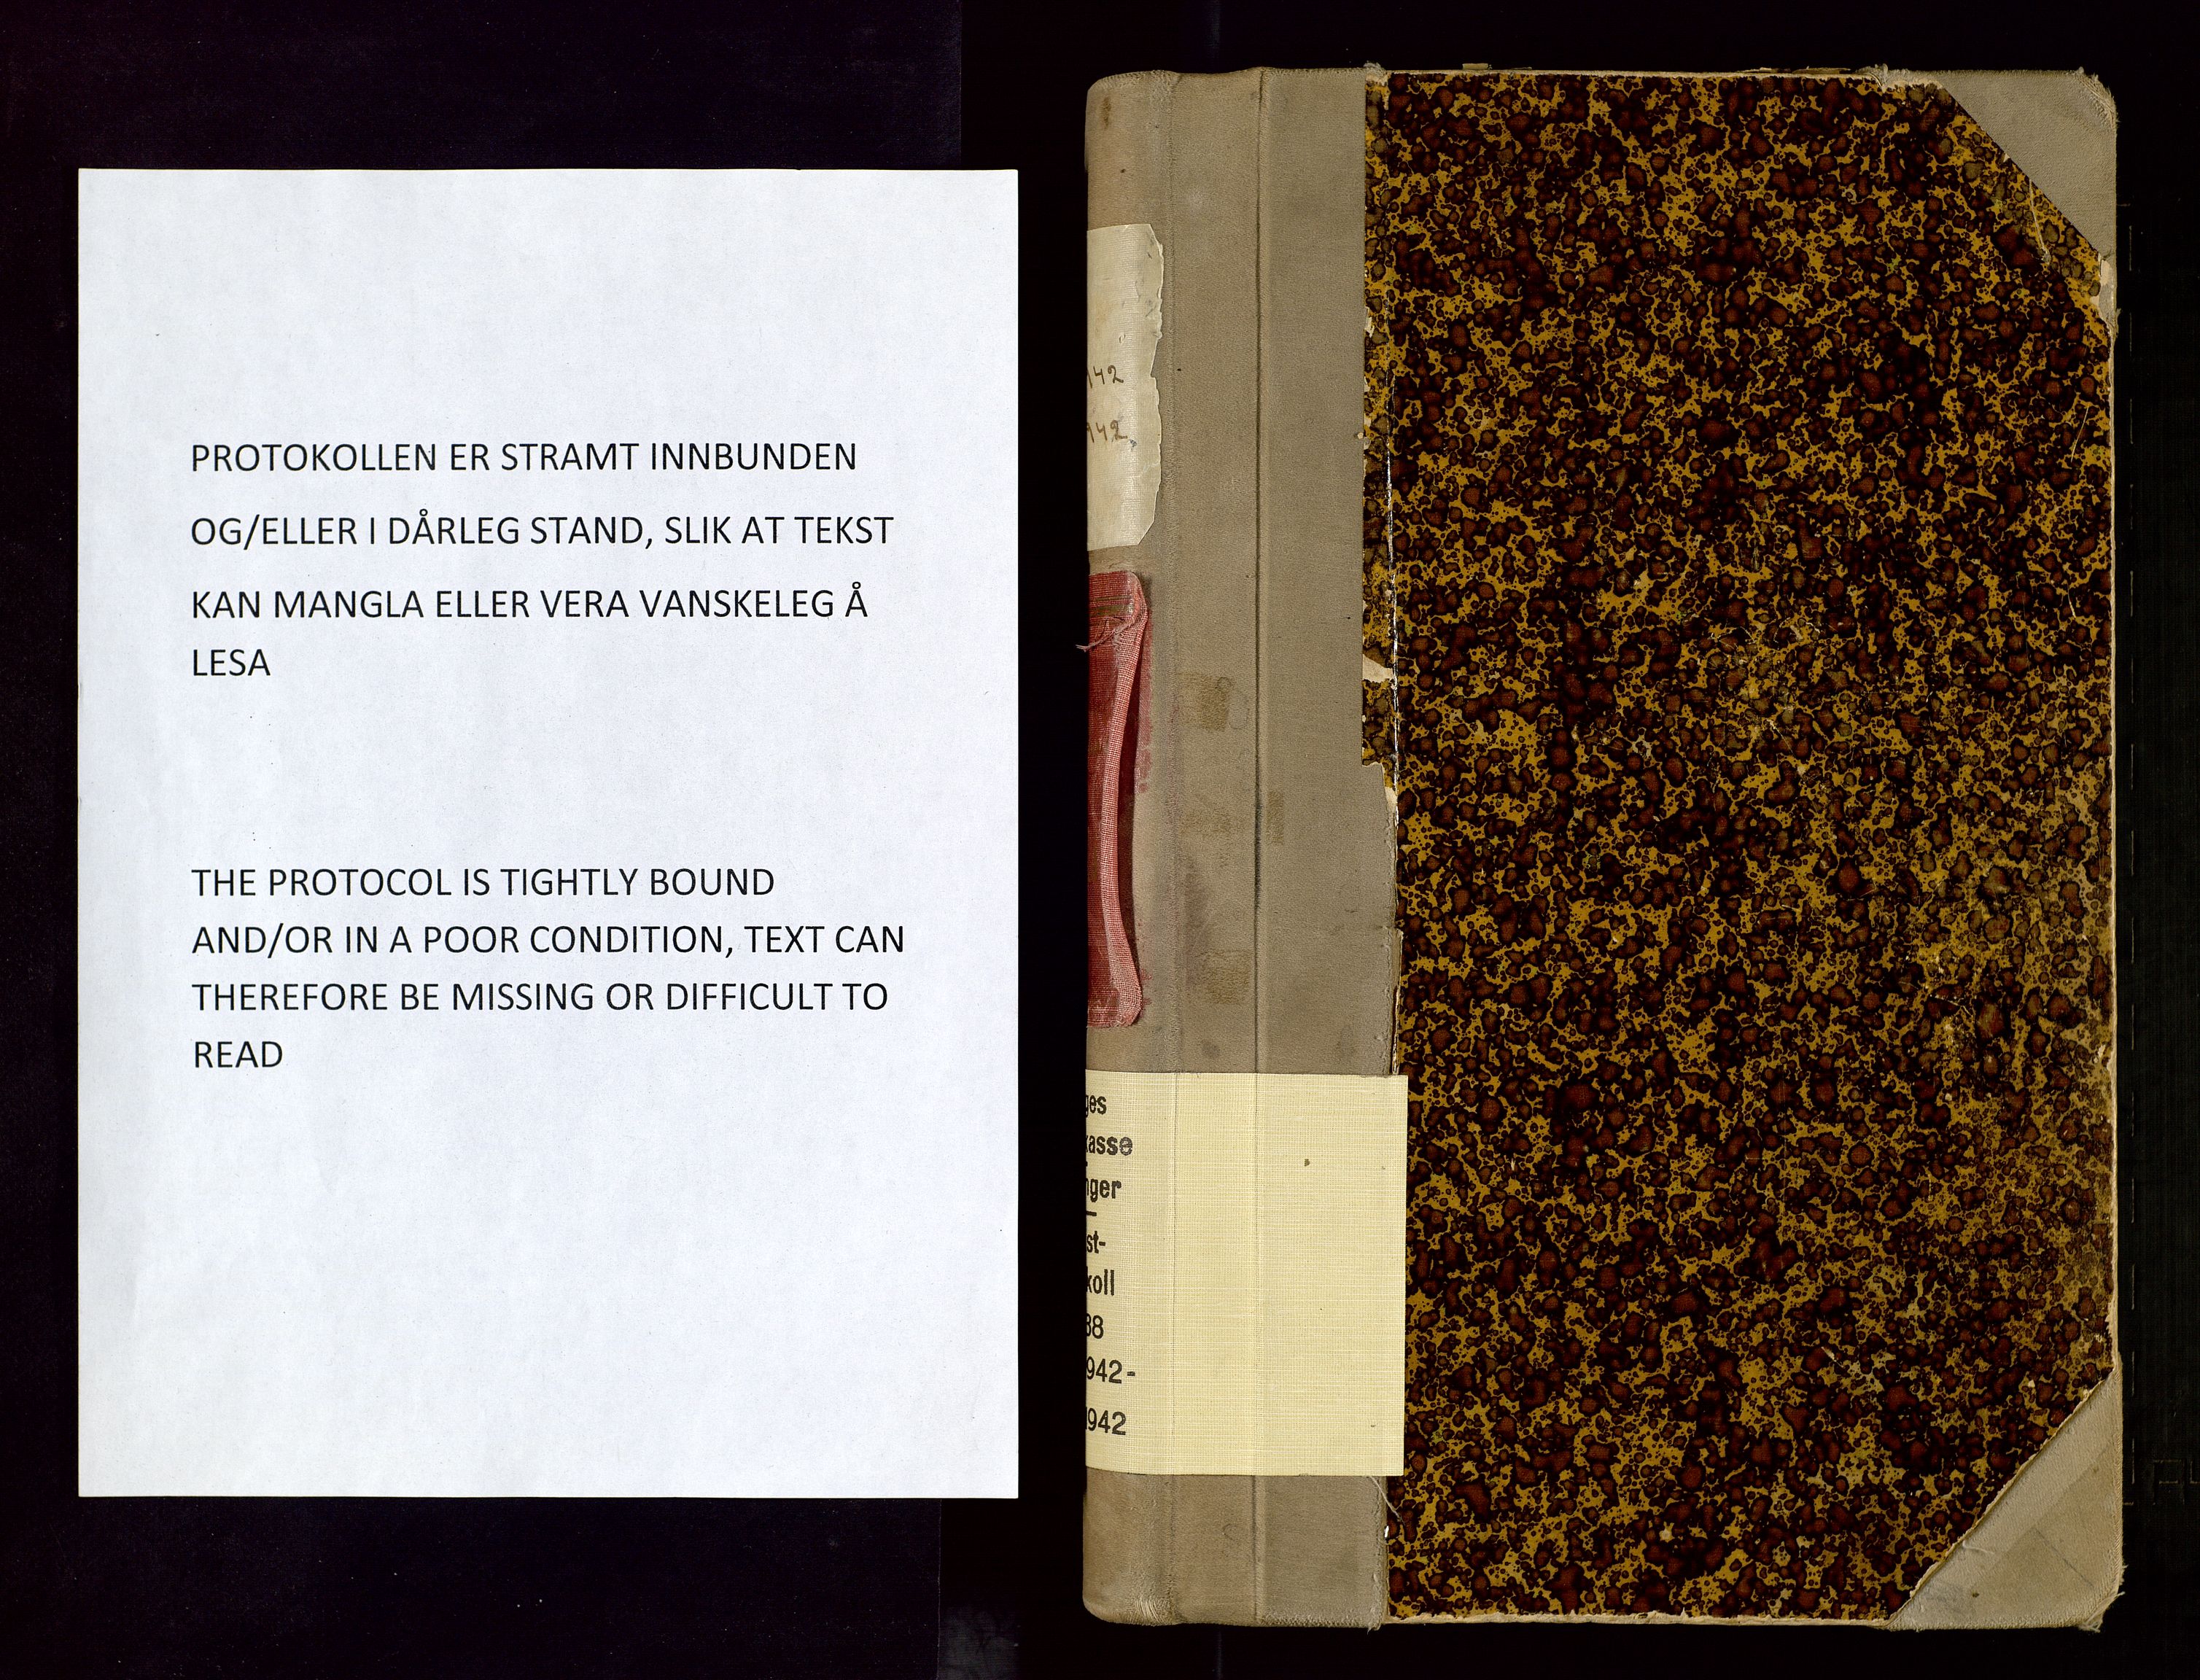 PROTOKOLLEN ER STRAMT INNBUNDEN
OG/ELLER I DÅRLEG STAND, SLIK AT TEKST
KAN MANGLA ELLER VERA VANSKELEG Å
LESA
THE PROTOCOL IS TIGHTLY BOUND
AND/OR IN A POOR CONDITION, TEXT CAN
THEREFORE BE MISSING OR DIFFICULT TO
READ
942
942
ges
kasse
nger
st-
koll
38
942-
1942